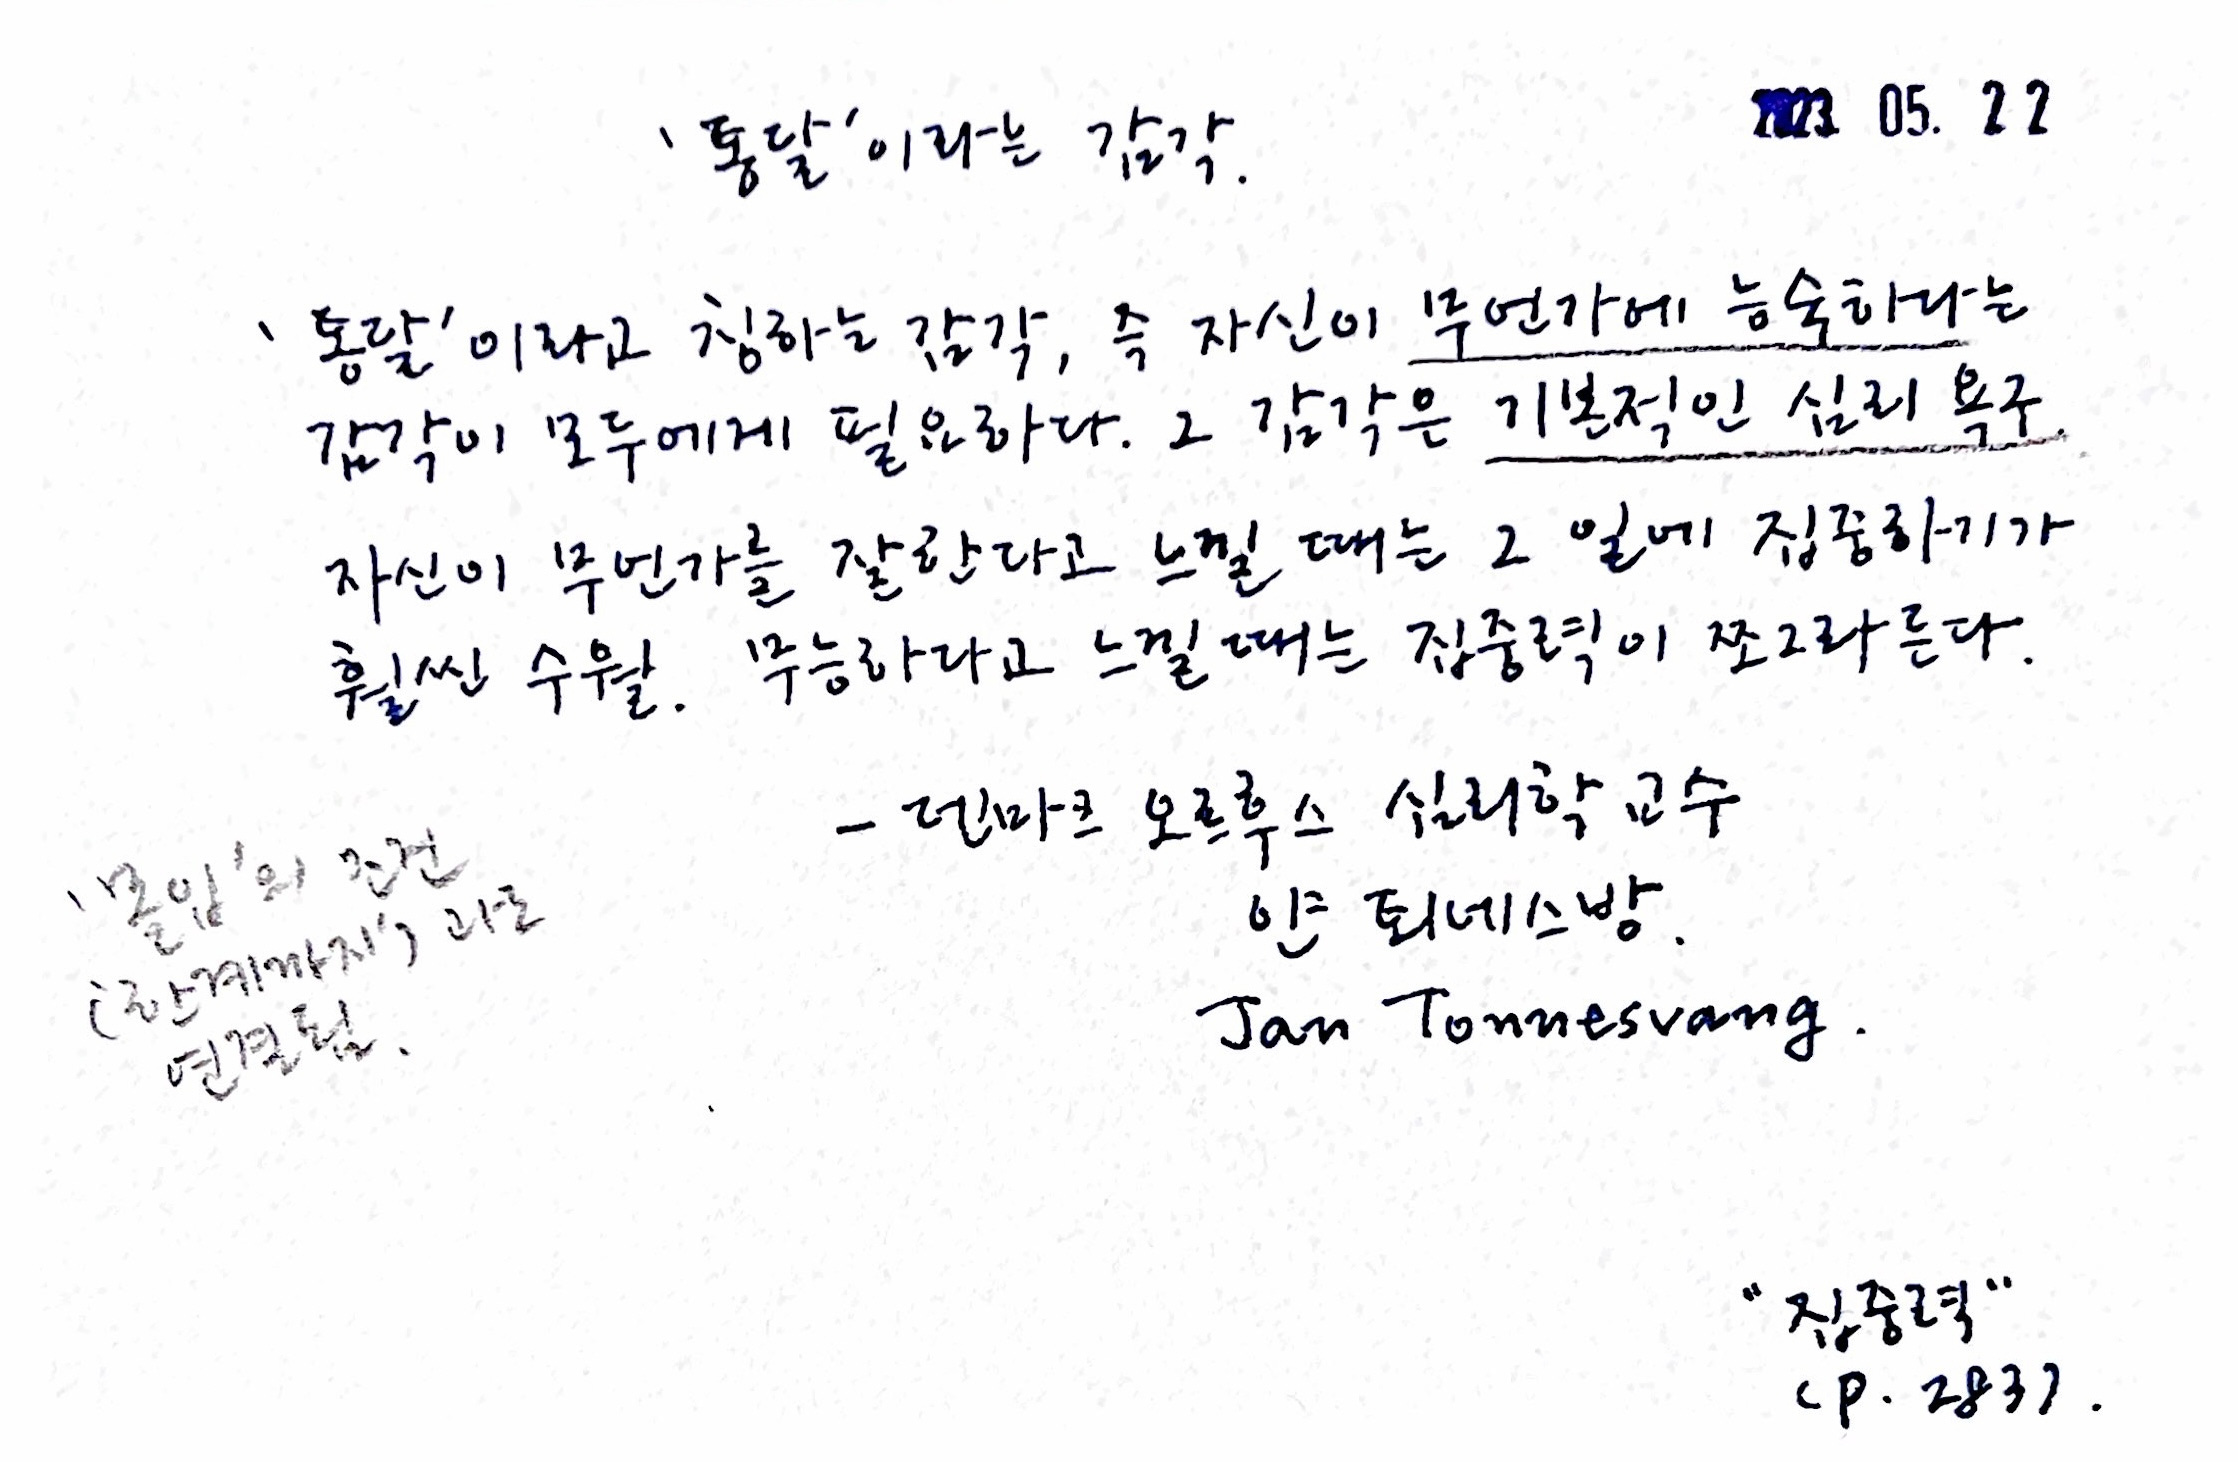 2023 05. 22
'통달'이라는 감각.
'통달'이라고 칭하는 감각, 즉 자신이 무언가에 능숙하다는
감각이 모두에게 필요하다. 그 감각은 기본적인 심리 욕구.
자신이 무언가를 잘한다고 느낄 때는 그 일에 집중하기가
훨씬 수월. 무능하다고 느낄 때는 집중력이 쪼그라든다.
- 덴마크 오르후스 심리학 교수
얀 퇴네스방.
Jan Tonnesvang.
'몰입'의 조건
('한계까지') 과도
연결됨.
"집중력"
(p. 283).